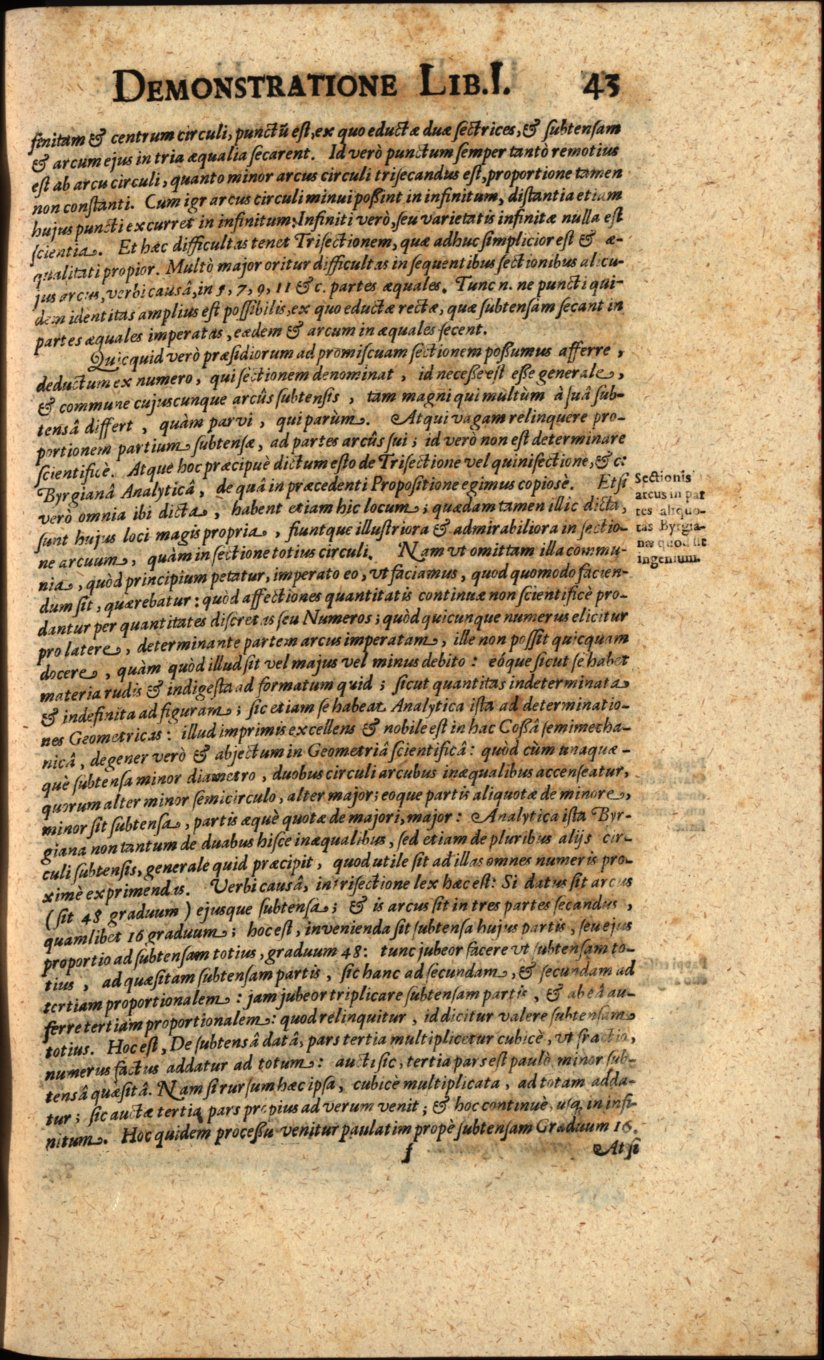 DEMONSTRATIONE LIB.I. 43
finitam & centrum circuli, punctũ est, ex quo eductæ duæ sectrices, & subtensam
& arcum ejus in tria æqualia secarent. Id verò punctum semper tantò remotius
est ab arcu circuli, quanto minor arcus circuli trisecandus est, proportione tamen
non constanti. Cum igr arcus circuli minui poßint in infinitum, distantia etiam
hujus puncti excurret in infinitum: Infiniti verò, seu varietatis infinitæ nulla est
scientia. Et hæc difficultas tenet Trisectionem, quæ adhuc simplicior est & æ-
qualitati propior. Multò major oritur difficultas in sequentibus sectionibus alicu-
jus arcus, verbi causâ, in 5, 7, 9, 11 & c. partes æquales. Tunc n. ne puncti qui-
dem identitas amplius est possibilis, ex quo eductæ rectæ, quæ subtensam secant in
partes æquales imperatas, eædem & arcum in æquales secent.
Quicquid verò præsidiorum ad promiscuam sectionem poßumus afferre,
deductum ex numero, qui sectionem denominat, id neceße est eße generale,
& commune cujuscunque arcûs subtensis, tam magni qui multùm à suâ sub-
tensâ differt, quàm parvi, qui parùm. Atqui vagam relinquere pro-
portionem partium subtensæ, ad partes arcûs sui; id verò non est determinare
scientificè. Atque hoc præcipuè dictum esto de Trisectione vel quinisectione, & c:
Byrgianâ Analyticâ, de quâ in præcedenti Propositione egimus copiosè. Etsi
verò omnia ibi dicta, habent etiam hic locum; quædam tamen illic dicta,
sunt hujus loci magis propria, fiuntque illustriora & admirabiliora in sectio-
ne arcuum, quàm in sectione totius circuli. Nam vt omittam illa commu-
nia, quòd principium petatur, imperato eo, vt faciamus, quod quomodo facien-
dum sit, quærebatur: quòd affectiones quantitatis continuæ non scientificè pro-
dantur per quantitates discretas seu Numeros; quòd quicunque numerus elicitur
pro latere, determinante partem arcus imperatam, ille non possit quicquam
docere, quàm quòd illud sit vel majus vel minus debito: eóque sicut se habet
materia rudis & indigesta ad formatum quid; sicut quantitas indeterminata
& indefinita ad figuram; sic etiam se habeat Analytica ista ad determinatio-
nes Geometricas: illud imprimis excellens & nobile est in hac Coßâ semimecha-
nicâ, degener verò & abjectum in Geometriâ scientificâ: quòd cùm unaquæ-
què subtensa minor diametro, duobus circuli arcubus inæqualibus accenseatur,
quorum alter minor semicirculo, alter major; eoque partis aliquotæ de minore,
minor sit subtensa, partis æquè quotæ de majori, major: Analytica ista Byr-
giana non tantum de duabus hisce inæqualibus, sed etiam de pluribus alijs cir-
culi subtensis, generale quid præcipit, quod utile sit ad illas omnes numeris pro-
ximè exprimendas. Verbi causâ, in trisectione lex hæc est: Si datus sit arcus
(sit 48 graduum) ejusque subtensa; & is arcus sit in tres partes secandus,
quamlibet 16 graduum; hoc est, invenienda sit subtensa hujus partis, seu ejus
proportio ad subtensam totius, graduum 48: tunc jubeor facere vt subtensam to-
tius, ad quæsitam subtensam partis, sic hanc ad secundam, & secundam ad
tertiam proportionalem: jam jubeor triplicare subtensam partis, & ab eâ au-
ferre tertiam proportionalem: quod relinquitur, id dicitur valere subtensam
totius. Hoc est, De subtensâ datâ, pars tertia multiplicetur cubicè, vt fractio,
numerus factus addatur ad totum: aucti sic, tertia pars est paulò minor sub-
tensâ quæsitâ. Nam si rursum hæc ipsa, cubicè multiplicata, ad totam adda-
tur; sic auctæ tertia pars propius ad verum venit; & hoc continuè, usq; in infi-
nitum. Hoc quidem proceßu venitur paulatim propè subtensam Graduum 16.
f At si
Sectionis
arcus in par
tes aliquo-
tas Byrgia-
næ quod sit
ingenium.